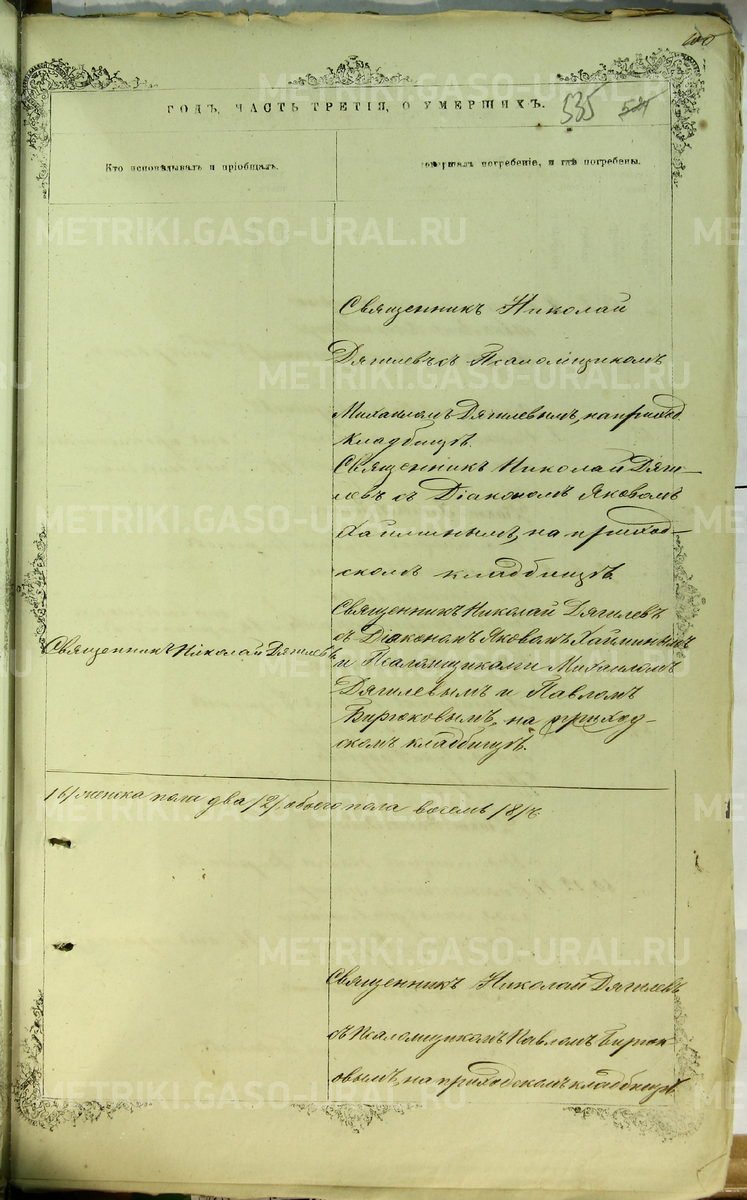 ГОДЪ, ЧАСТЬ ТРЕТІЯ, О УМЕРШИХЪ.
535
Кто исповѣдывалъ и пріобщалъ.
совершалъ погребеніе, и гдѣ погребены.
METRIKI.GASO-URAL.RU
Священникъ Николай
Дягилевъ съ Псаломщикомъ
Михаиломъ Дягилевымъ, на приход.
кладбищѣ.
Священникъ Николай Дяги-
левъ съ Діакономъ Яковомъ
Хайминымъ, на приход-
скомъ кладбищѣ.
Священникъ Николай Дягилевъ
съ Діакономъ Яковомъ Хайминымъ
Священникъ Николай Дягилевъ.
и Псаломщиками Михаиломъ
Дягилевымъ и Павломъ
Бирюковымъ, на приход-
скомъ кладбищѣ.
/6/ женска пола два /2/, обоего пола восемь /8/ъ
Священникъ Николай Дягилевъ
съ Псаломщикомъ Павломъ Бирюк
овымъ, на приходскомъ кладбищѣ.